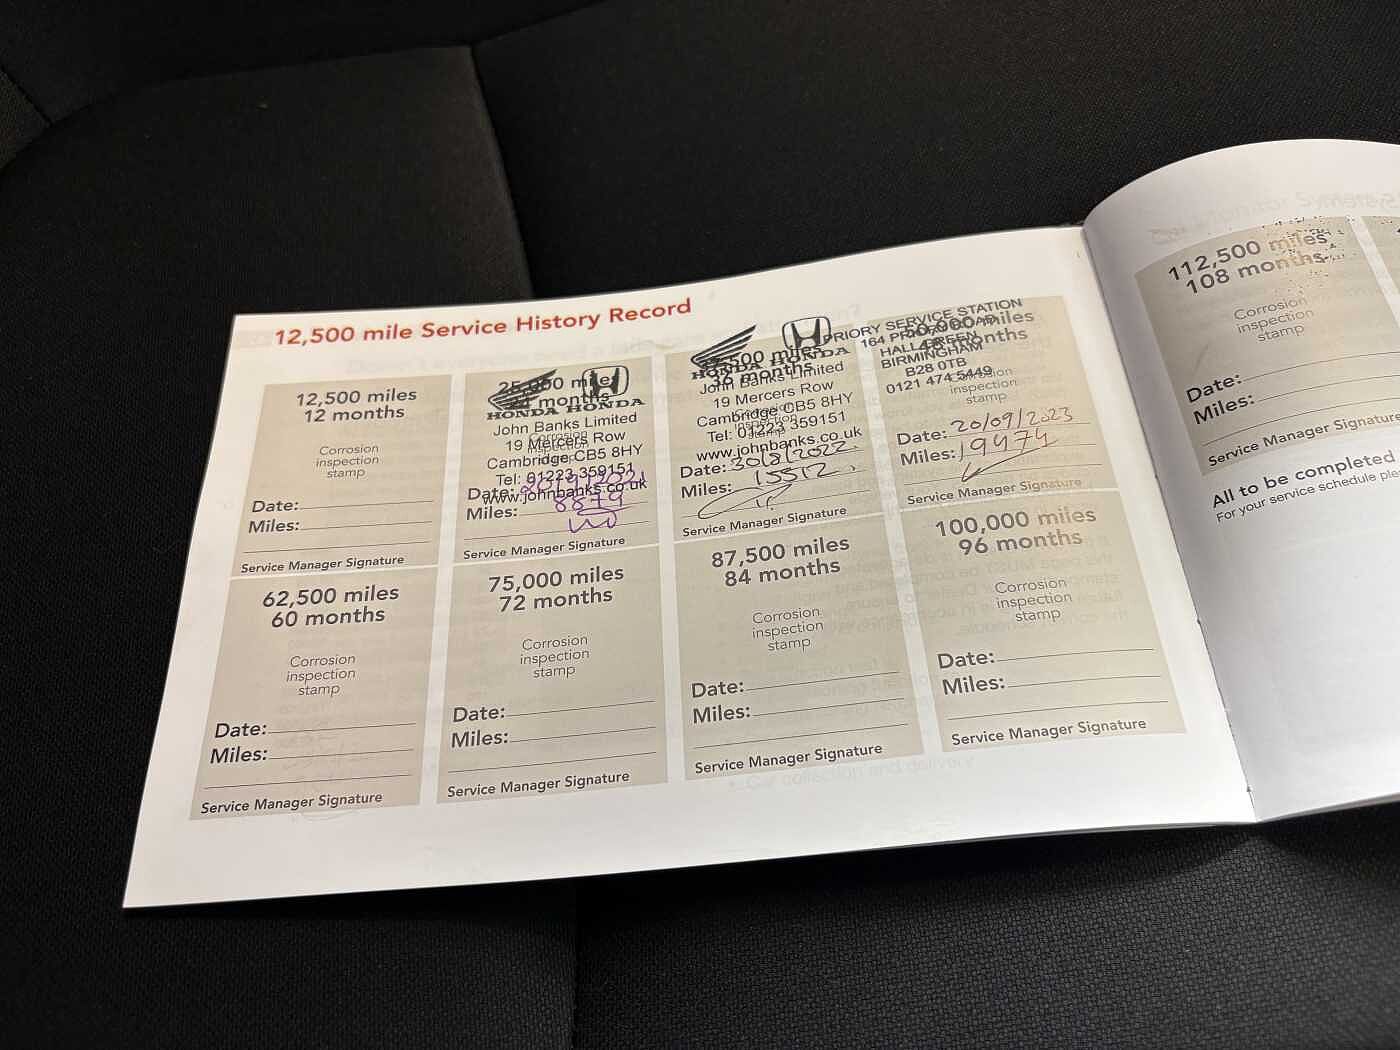 12,500 mile Service History Record
12,500 miles
12 months
Corrosion
inspection
stamp
Date:
Miles:
Service Manager Signature
25,000 miles
HONDA HONDA
John Banks Limited
19 Mercers Row
Cambridge CB5 8HY
Tel: 01223 359151
www.johnbanks.co.uk
Date:
Miles: 8879
Service Manager Signature
36 months
HONDA HONDA
John Banks Limited
19 Mercers Row
Cambridge CB5 8HY
Tel: 01223 359151
www.johnbanks.co.uk
Date: 30/8/2022
Miles: 15512
Service Manager Signature
PRIORY SERVICE STATION
50,000 miles
months
HALL GREEN
BIRMINGHAM
B28 0TB
0121 474 5449
Corrosion
inspection
stamp
Date: 20/09/2023
Miles: 19474
Service Manager Signature
62,500 miles
60 months
Corrosion
inspection
stamp
Date:
Miles:
Service Manager Signature
75,000 miles
72 months
Corrosion
inspection
stamp
Date:
Miles:
Service Manager Signature
87,500 miles
84 months
Corrosion
inspection
stamp
Date:
Miles:
Service Manager Signature
100,000 miles
96 months
Corrosion
inspection
stamp
Date:
Miles:
Service Manager Signature
112,500 miles
108 months
Corrosion
inspection
stamp
Date:
Miles:
Service Manager Signature
All to be completed
For your service schedule